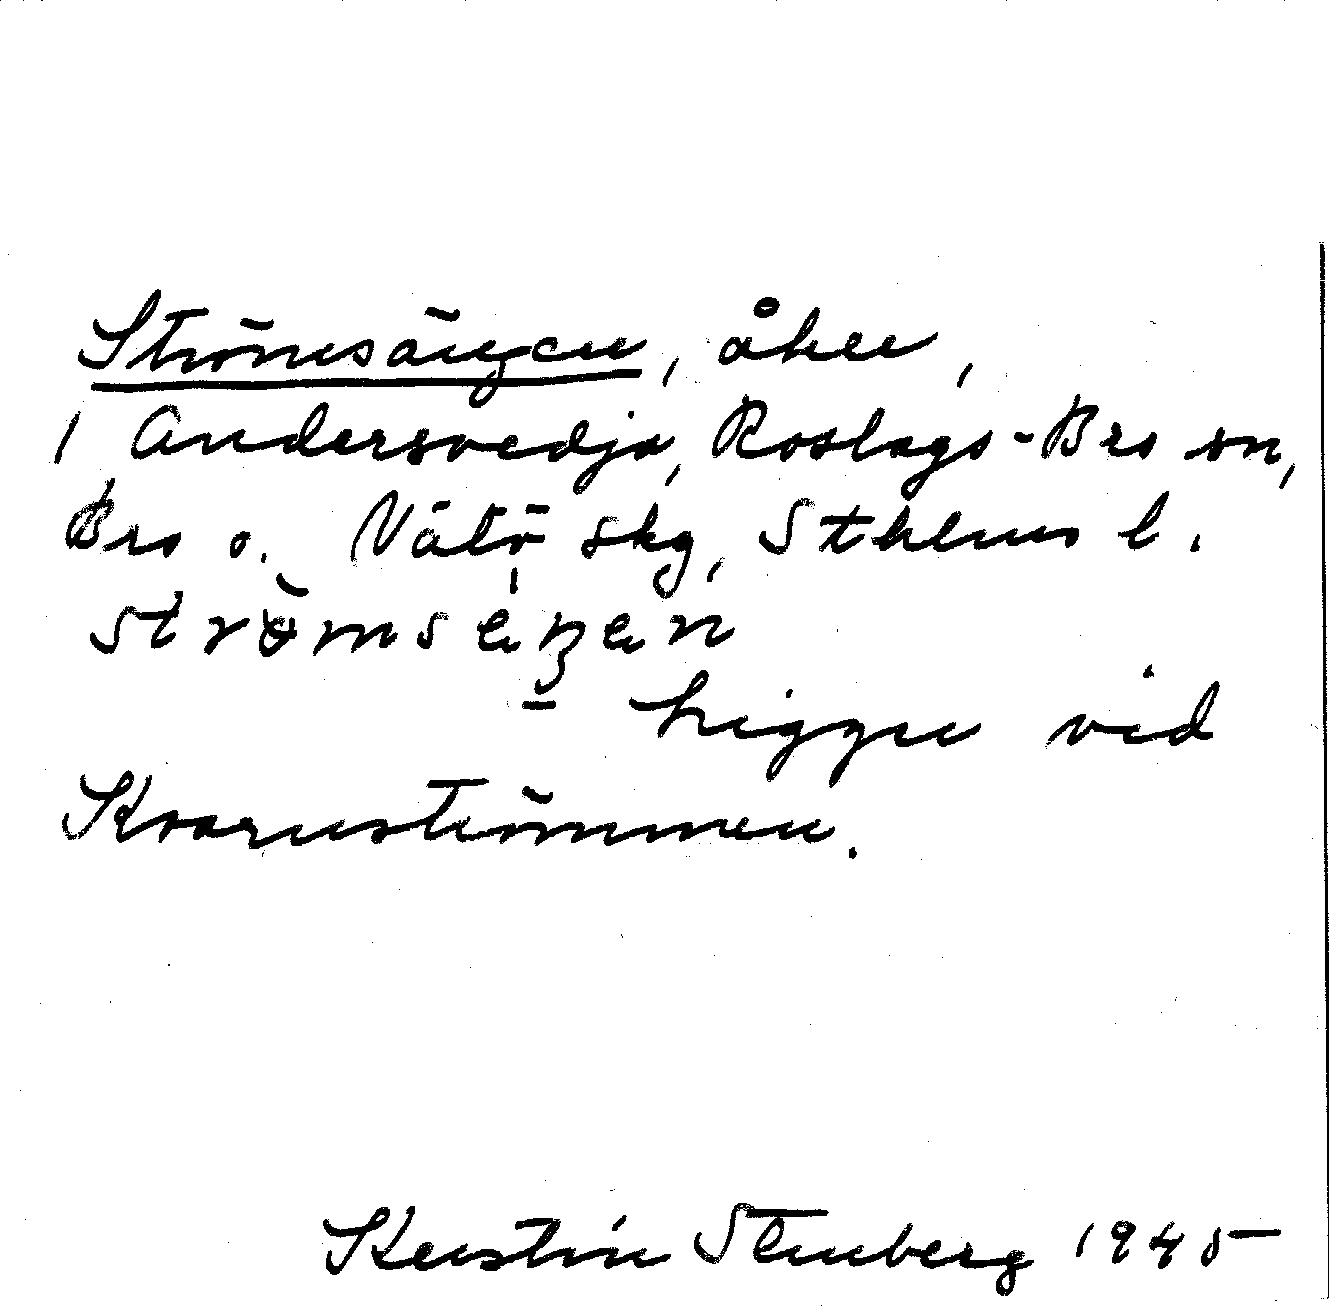 Strömsängen, åker,
i Andersvedja, Roslags-Bro sn,
Bro o. Vätö skg, Sthlms l.
strömseŋen
Ligger vid
Kvarnströmmen.
Kerstin Stenberg 1945